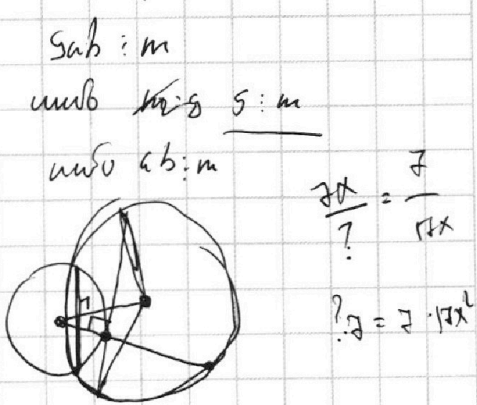 5ab ⋮ m
либо 5 ⋮ m
либо ab ⋮ m
7x/? = 7/17x
?7 = 7·17x²